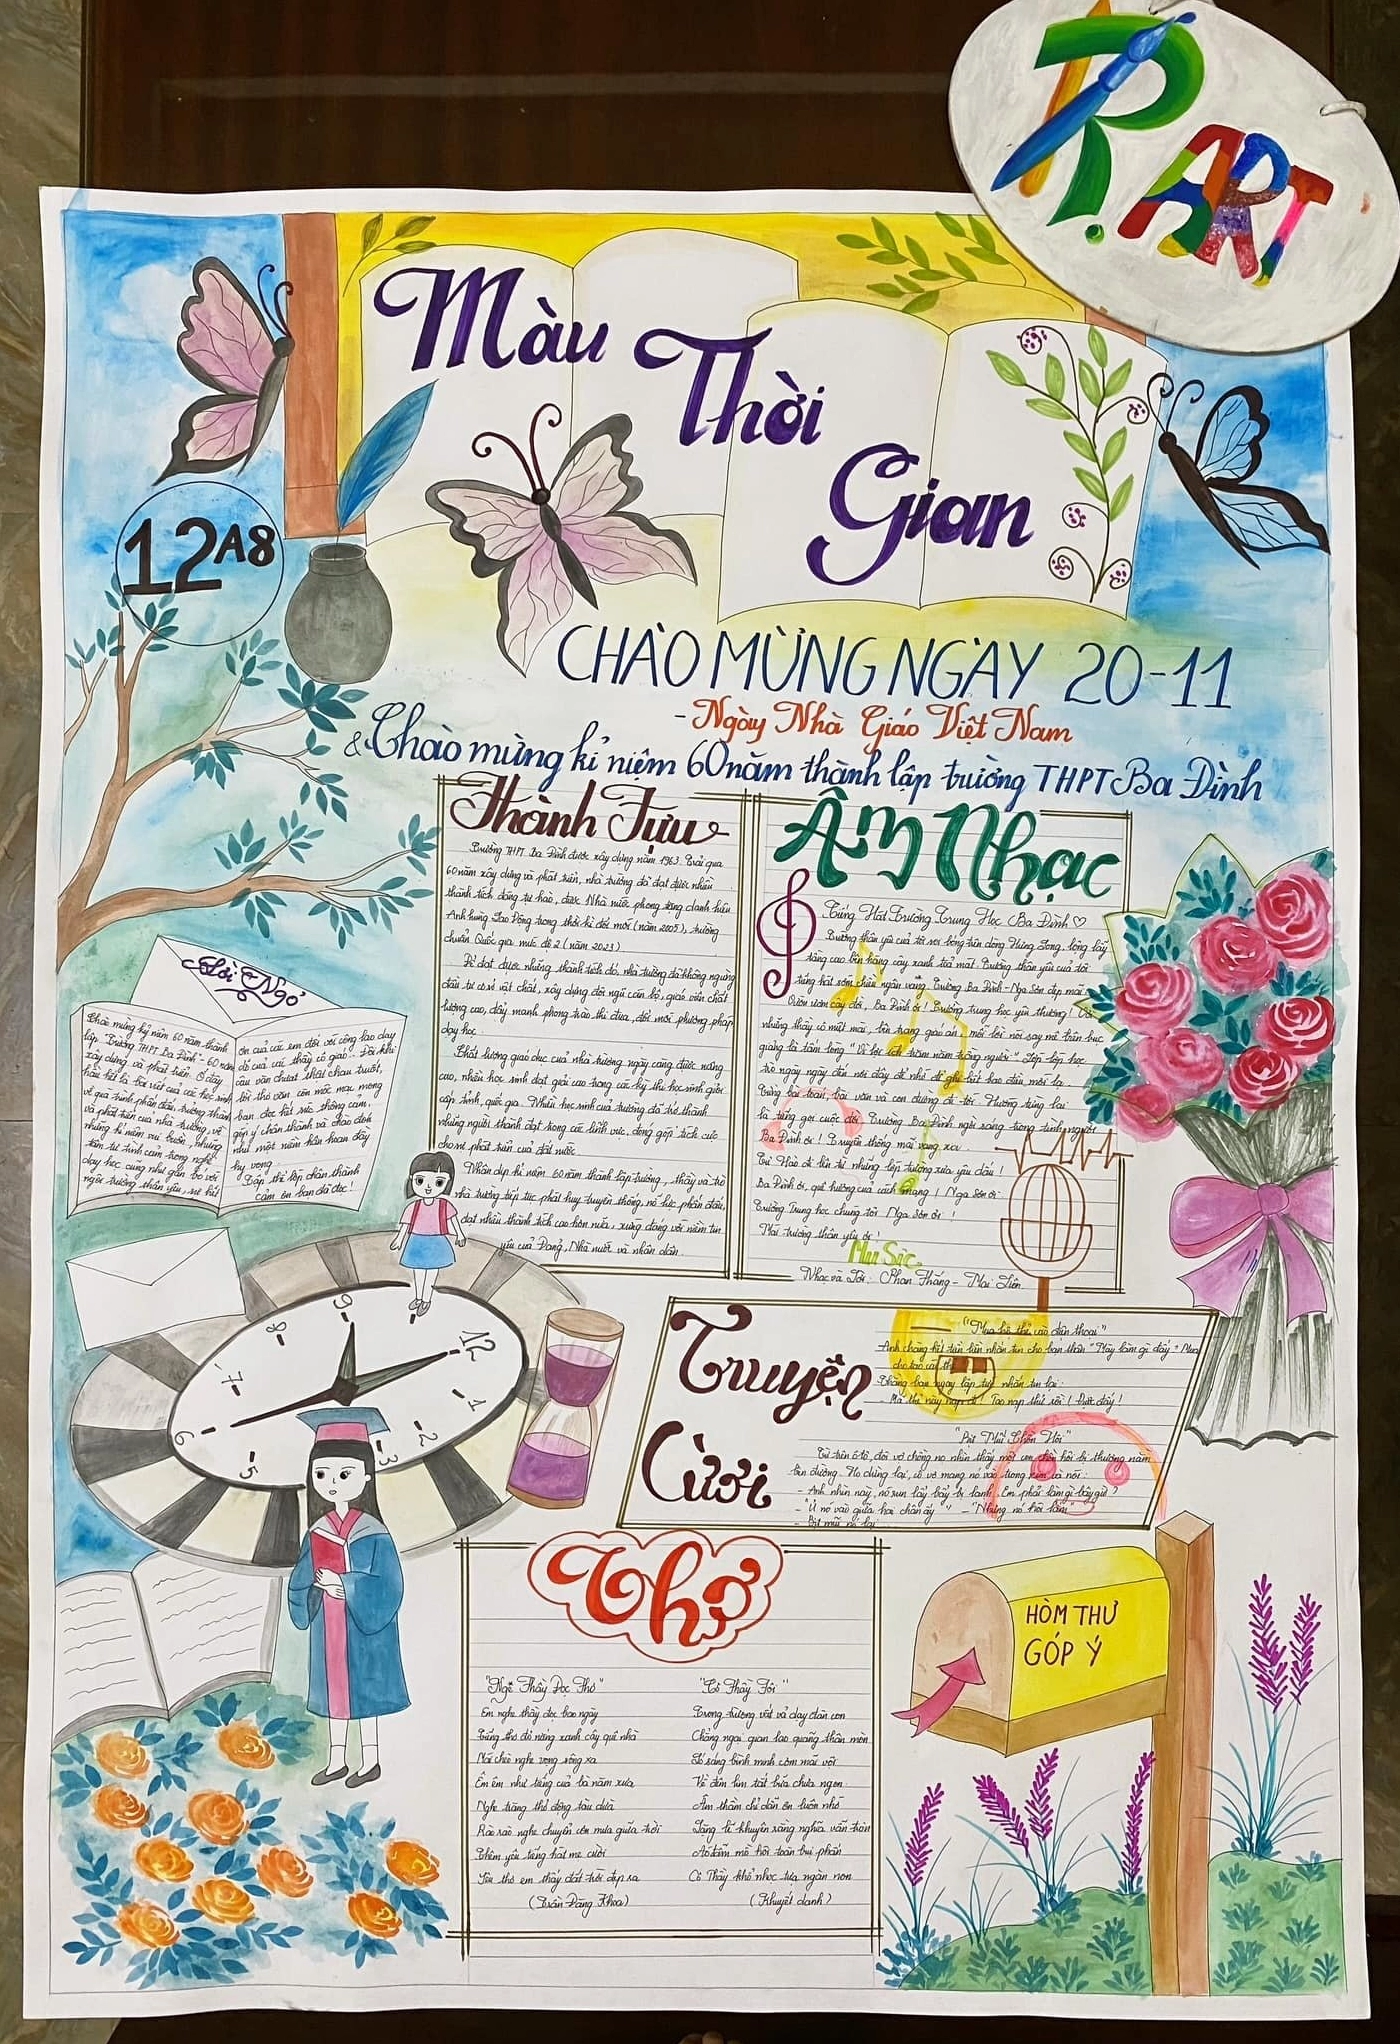 R.ART
Màu
Thời
Gian
12A8
CHÀO MỪNG NGÀY 20-11
-Ngày Nhà Giáo Việt Nam
& Chào mừng kỉ niệm 60 năm thành lập trường THPT Ba Đình
Thành Tựu
Trường THPT Ba Đình được xây dựng năm 1963. Trải qua
60 năm xây dựng và phát triển, nhà trường đã đạt được nhiều
thành tích đáng tự hào, được Nhà nước phong tặng danh hiệu
Anh hùng Lao Động trong thời kì đổi mới (năm 2005), trường
chuẩn Quốc gia mức độ 2 (năm 2023)
Để đạt được những thành tích đó, nhà trường đã không ngừng
đầu tư cơ sở vật chất, xây dựng đội ngũ cán bộ, giáo viên chất
lượng cao, đẩy mạnh phong trào thi đua, đổi mới phương pháp
dạy học.
Chất lượng giáo dục của nhà trường ngày càng được nâng
cao, nhiều học sinh đạt giải cao trong các kỳ thi học sinh giỏi
cấp tỉnh, quốc gia. Nhiều học sinh của trường đã trở thành
những người thành đạt trong các lĩnh vực, đóng góp tích cực
cho sự phát triển của đất nước.
Nhân dịp kỉ niệm 60 năm thành lập trường, thầy và trò
nhà trường tiếp tục phát huy truyền thống, nỗ lực phấn đấu,
đạt nhiều thành tích cao hơn nữa, xứng đáng với niềm tin
yêu của Đảng, Nhà nước và nhân dân.
Âm Nhạc
Tiếng Hát Trường Trung Học Ba Đình ♡
Trường thân yêu của tôi soi bóng trên dòng Hưng Long, lộng lẫy
tầng cao bên hàng cây xanh toả mát. Trường thân yêu của tôi
tiếng hát sớm chiều ngân vang. Trường Ba Đình - Nga Sơn đẹp mãi
Ba Đình ơi! Trường trung học yêu thương!
giảng là tấm lòng "Vì lợi ích trăm năm trồng người". Lớp lớp học
trò ngày ngày đến nơi đây để nhớ để ghi biết bao điều mới lạ
Từng bài toán, bài văn và con đường đi tới. Hướng tương lai
là tiếng gọi cuộc đời. Trường Ba Đình ngời sáng trong tình người
Ba Đình ơi! Truyền thống mãi vang xa.
Tự Hào đi lên từ những lớp trường xưa yêu dấu!
Ba Đình ơi, quê hương của cách mạng! Nga Sơn ơi
Trường Trung học chúng tôi Nga Sơn ơi!
Mái trường thân yêu ơi!
MuSic
Nhạc và Lời: Phan Thắng - Mai Liên
Lời Ngỏ
Chào mừng kỷ niệm 60 năm thành
lập "Trường THPT Ba Đình" - 60 năm
xây dựng và phát triển. Ở đây
hầu hết là bài viết của các học sinh
về quá trình phấn đấu, trưởng thành
và phát triển của nhà trường, về
những kỉ niệm vui buồn, những
tâm tư tình cảm trong nghề
dạy học cũng như gắn bó với
ngôi trường thân yêu, sự biết
ơn của các em đối với công lao dạy
dỗ của các thầy cô giáo... Đôi khi
câu văn chưa thật chau chuốt,
lời thơ vẫn còn mộc mạc mong
bạn đọc hết sức thông cảm,
góp ý chân thành và chào đón
như một niềm hân hoan đầy
hy vọng.
Ban thi lớp chân thành
cảm ơn bạn đã đọc!
9
8
12
7
1
6
2
5
3
Truyện
Cười
"Mua hộ thẻ cào điện thoại"
Anh chàng hết tiền liền nhắn tin cho bạn thân "Mày làm gì đấy? Mua
cho tao cái thẻ
Thằng bạn ngay lập tức nhắn tin lại:
- Mã thẻ này nạp đi! Tao nạp thử rồi! Được đấy!
"Bịt Mũi Chồn Hôi"
Từ trên ô tô, đôi vợ chồng nọ nhìn thấy một con chồn hôi bị thương nằm
bên đường. Họ dừng lại, cô vợ mang nó vào trong xe và nói:
- Anh nhìn này, nó run lẩy bẩy vì lạnh. Em phải làm gì bây giờ?
- "Ủ nó vào giữa hai chân ấy" - "Nhưng nó hôi lắm"
- Bịt mũi nó lại
Thơ
"Nghe Thầy Đọc Thơ"
Em nghe thầy đọc bao ngày
Tiếng thơ đỏ nắng xanh cây quê nhà
Mái chèo nghe vọng sông xa
Êm êm như tiếng của bà năm xưa
Nghe trăng thở động tàu dừa
Rào rào nghe chuyển cơn mưa giữa trời
Thêm yêu tiếng hát mẹ cười
Yêu thơ em thấy đất trời đẹp ra
(Trần Đăng Khoa)
"Cô Thầy Tôi"
Trong trường vất vả dạy đàn con
Chẳng ngại gian lao quãng thân mòn
Tờ sáng bình minh còn mãi vội
Về đêm lìm tắt bữa chưa ngon
Âm thầm chỉ dẫn ơn luôn nhớ
Lặng lẽ khuyên răng nghĩa vẫn tròn
Áo đẫm mồ hôi toàn bụi phấn
Cô Thầy khổ nhọc tựa ngàn non
(Khuyết danh)
HÒM THƯ
GÓP Ý